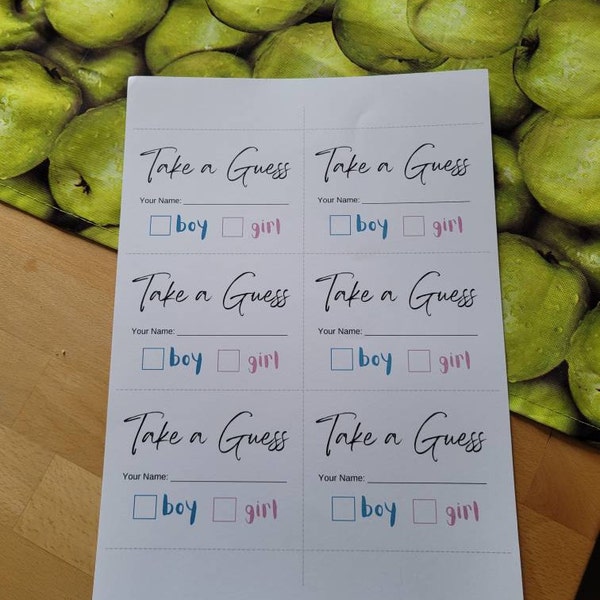 Take a Guess
Your Name:
boy girl
Take a Guess
Your Name:
boy girl
Take a Guess
Your Name:
boy girl
Take a Guess
Your Name:
boy girl
Take a Guess
Your Name:
boy girl
Take a Guess
Your Name:
boy girl